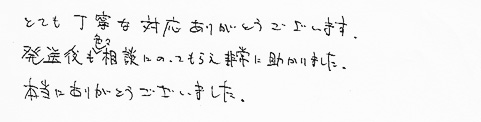 とても丁寧な対応ありがとうございます.
発送後も色々相談にのってもらえ非常に助かりました.
本当にありがとうございました.